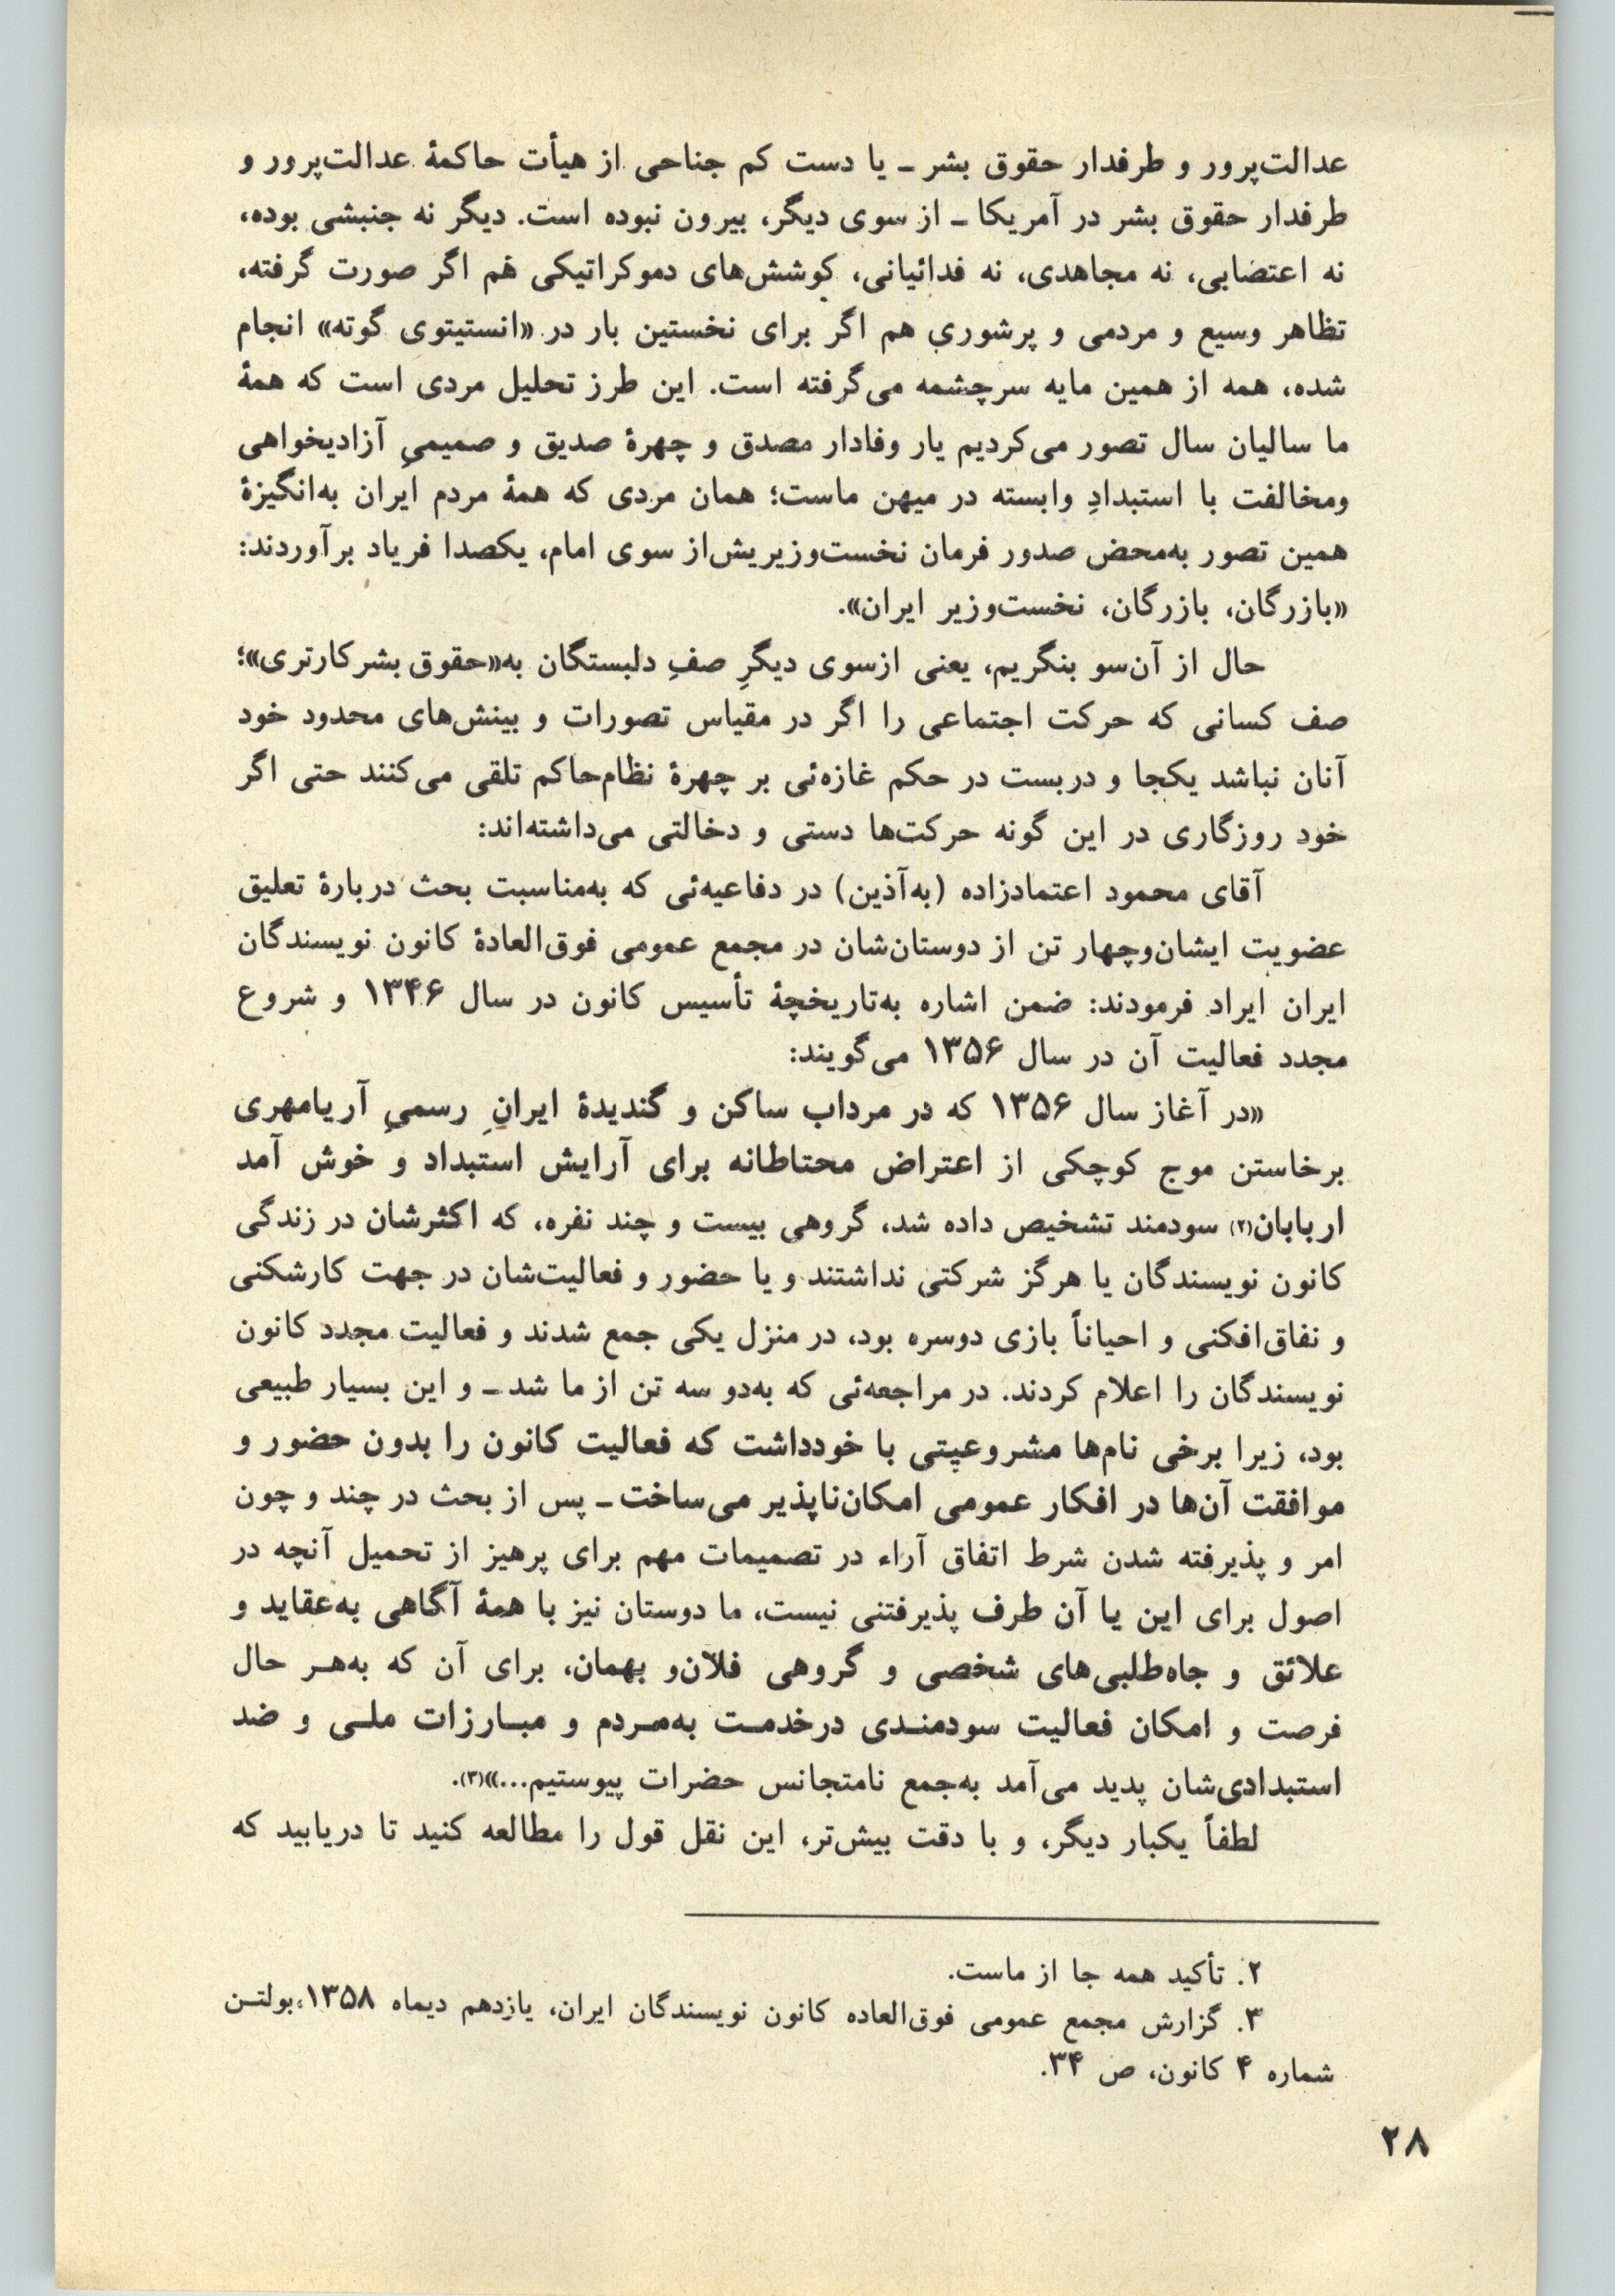 عدالت‌پرور و طرفدار حقوق بشر ـ یا دست کم جناحی از هیأت حاکمهٔ عدالت‌پرور و
طرفدار حقوق بشر در آمریکا ـ از سوی دیگر، بیرون نبوده است. دیگر نه جنبشی بوده،
نه اعتصابی، نه مجاهدی، نه فدائیانی، کوشش‌های دموکراتیکی هم اگر صورت گرفته،
تظاهر وسیع و مردمی و پرشوری هم اگر برای نخستین بار در «انستیتوی گوته» انجام
شده، همه از همین مایه سرچشمه می‌گرفته است. این طرز تحلیل مردی است که همهٔ
ما سالیان سال تصور می‌کردیم یار وفادار مصدق و چهرهٔ صدیق و صمیمیِ آزادیخواهی
ومخالفت با استبدادِ وابسته در میهن ماست؛ همان مردی که همهٔ مردم ایران به‌انگیزهٔ
همین تصور به‌محض صدور فرمان نخست‌وزیریش‌از سوی امام، یکصدا فریاد برآوردند:
«بازرگان، بازرگان، نخست‌وزیر ایران».
حال از آن‌سو بنگریم، یعنی ازسوی دیگرِ صفِ دلبستگان به«حقوق بشر کارتری»؛
صف کسانی که حرکت اجتماعی را اگر در مقیاس تصورات و بینش‌های محدود خود
آنان نباشد یکجا و دربست در حکم غازه‌ئی بر چهرهٔ نظام‌حاکم تلقی می‌کنند حتی اگر
خود روزگاری در این گونه حرکت‌ها دستی و دخالتی می‌داشته‌اند:
آقای محمود اعتمادزاده (به‌آذین) در دفاعیه‌ئی که به‌مناسبت بحث دربارهٔ تعلیق
عضویت ایشان‌وچهار تن از دوستان‌شان در مجمع عمومی فوق‌العادهٔ کانون نویسندگان
ایران ایراد فرمودند: ضمن اشاره به‌تاریخچهٔ تأسیس کانون در سال ۱۳۴۶ و شروع
مجدد فعالیت آن در سال ۱۳۵۶ می‌گویند:
«در آغاز سال ۱۳۵۶ که در مرداب ساکن و گندیدهٔ ایرانِ رسمیِ آریامهری
برخاستن موج کوچکی از اعتراض محتاطانه برای آرایش استبداد و خوش آمد
اربابان(۲) سودمند تشخیص داده شد، گروهی بیست و چند نفره، که اکثرشان در زندگی
کانون نویسندگان یا هرگز شرکتی نداشتند و یا حضور و فعالیت‌شان در جهت کارشکنی
و نفاق‌افکنی و احیاناً بازی دوسره بود، در منزل یکی جمع شدند و فعالیت مجدد کانون
نویسندگان را اعلام کردند. در مراجعه‌ئی که به‌دو سه تن از ما شد ـ و این بسیار طبیعی
بود، زیرا برخی نام‌ها مشروعیتی با خودداشت که فعالیت کانون را بدون حضور و
موافقت آن‌ها در افکار عمومی امکان‌ناپذیر می‌ساخت ـ پس از بحث در چند و چون
امر و پذیرفته شدن شرط اتفاق آراء در تصمیمات مهم برای پرهیز از تحمیل آنچه در
اصول برای این یا آن طرف پذیرفتنی نیست، ما دوستان نیز با همهٔ آگاهی به‌عقاید و
علائق و جاه‌طلبی‌های شخصی و گروهی فلان‌و بهمان، برای آن که به‌هـر حال
فرصت و امکان فعالیت سودمنـدی درخدمـت به‌مـردم و مبـارزات ملـی و ضد
استبدادی‌شان پدید می‌آمد به‌جمع نامتجانس حضرات پیوستیم...»(۳).
لطفاً یکبار دیگر، و با دقت بیش‌تر، این نقل قول را مطالعه کنید تا دریابید که
۲. تأکید همه جا از ماست.
۳. گزارش مجمع عمومی فوق‌العاده کانون نویسندگان ایران، یازدهم دیماه ۱۳۵۸،بولتـن
شماره ۴ کانون، ص ۳۴.
۲۸